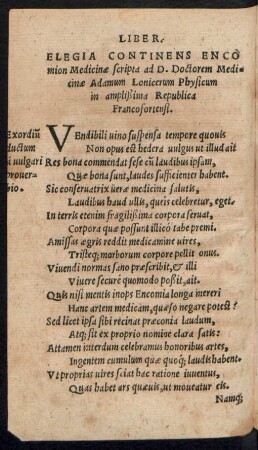 LIBER.
ELEGIA CONTINENS ENCO
mion Medicinæ scripta ad D. Doctorem Medi-
cinæ Adamum Lonicerum Physicum
in amplißima Republica
Francofortensi.
Exordiũ
ductum
i vulgari
prouer-
bio.
VEndibili uino suspensa tempore quouis
Non opus est hedera uulgus ut illud ait
Res bona commendat sese cũ laudibus ipsam,
Quæ bona sunt, laudes sufficienter habent.
Sic conseruatrix ueræ medicina salutis,
Laudibus haud ullis, quris celebretur, eget.
In terris etenim fragilißima corpora seruat,
Corpora quæ possunt illico tabe premi.
Amissas ægris reddit medicamine uires,
Tristeq; morborum corpore pellit onus.
Viuendi normas sano præscribit, & illi
Viuere securè quomodo poßit, ait.
Quis nisi mentis inops Encomia longa mereri
Hanc artem medicam, quæso negare potest?
Sed licet ipsa sibi recinat præconia laudum,
Atq; sit ex proprio nomine clara satis:
Attamen interdum celebramus honoribus artes,
Ingentem cumulum quæ quoq; laudis habent.
Vt proprias uires sciat hac ratione iuuentus,
Quas habet ars quæuis, ut moueatur eis.
Namq;